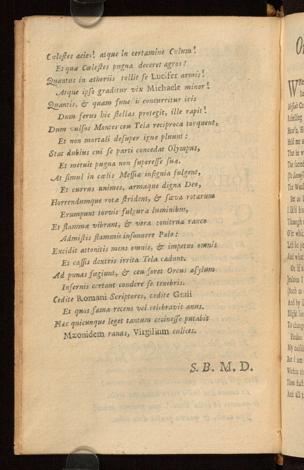 Cœlestes acies! atque in certamine Cœlum!
Et quæ Cœlestes pugna deceret agros!
Quantus in ætheriis tollit se Lucifer armis!
Atque ipso graditur vix Michaele minor!
Quantis, & quam funestis concurritur iris
Dum ferus hic stellas protegit, ille rapit!
Dum vulsos Montes ceu Tela reciproca torquent,
Et non mortali desuper igne pluunt:
Stat dubius cui se parti concedat Olympus,
Et metuit pugnæ non superesse suæ.
At simul in cœlis Messiæ insignia fulgent,
Et currus animes, armaque digna Deo,
Horrendumque rotæ strident, & sæva rotarum
Erumpunt torvis fulgura luminibus,
Et flammæ vibrant, & vera tonitrua rauco
Admistis flammis insonuere Polo:
Excidit attonitis mens omnis, & impetus omnis
Et cassis dextris irrita Tela cadunt.
Ad pœnas fugiunt, & ceu foret Orcus asylum
Infernis certant condere se tenebris.
Cedite Romani Scriptores, cedite Graii
Et quos fama recens vel celebravit anus.
Hæc quicunque leget tantum cecinisse putabit
Mæonidem ranas, Virgilium culices.
S. B. M. D.